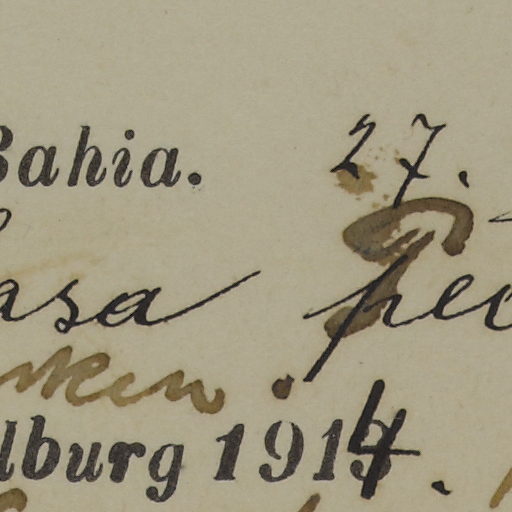 Bahia. 27.
asa pec
ken.
lburg 1914.